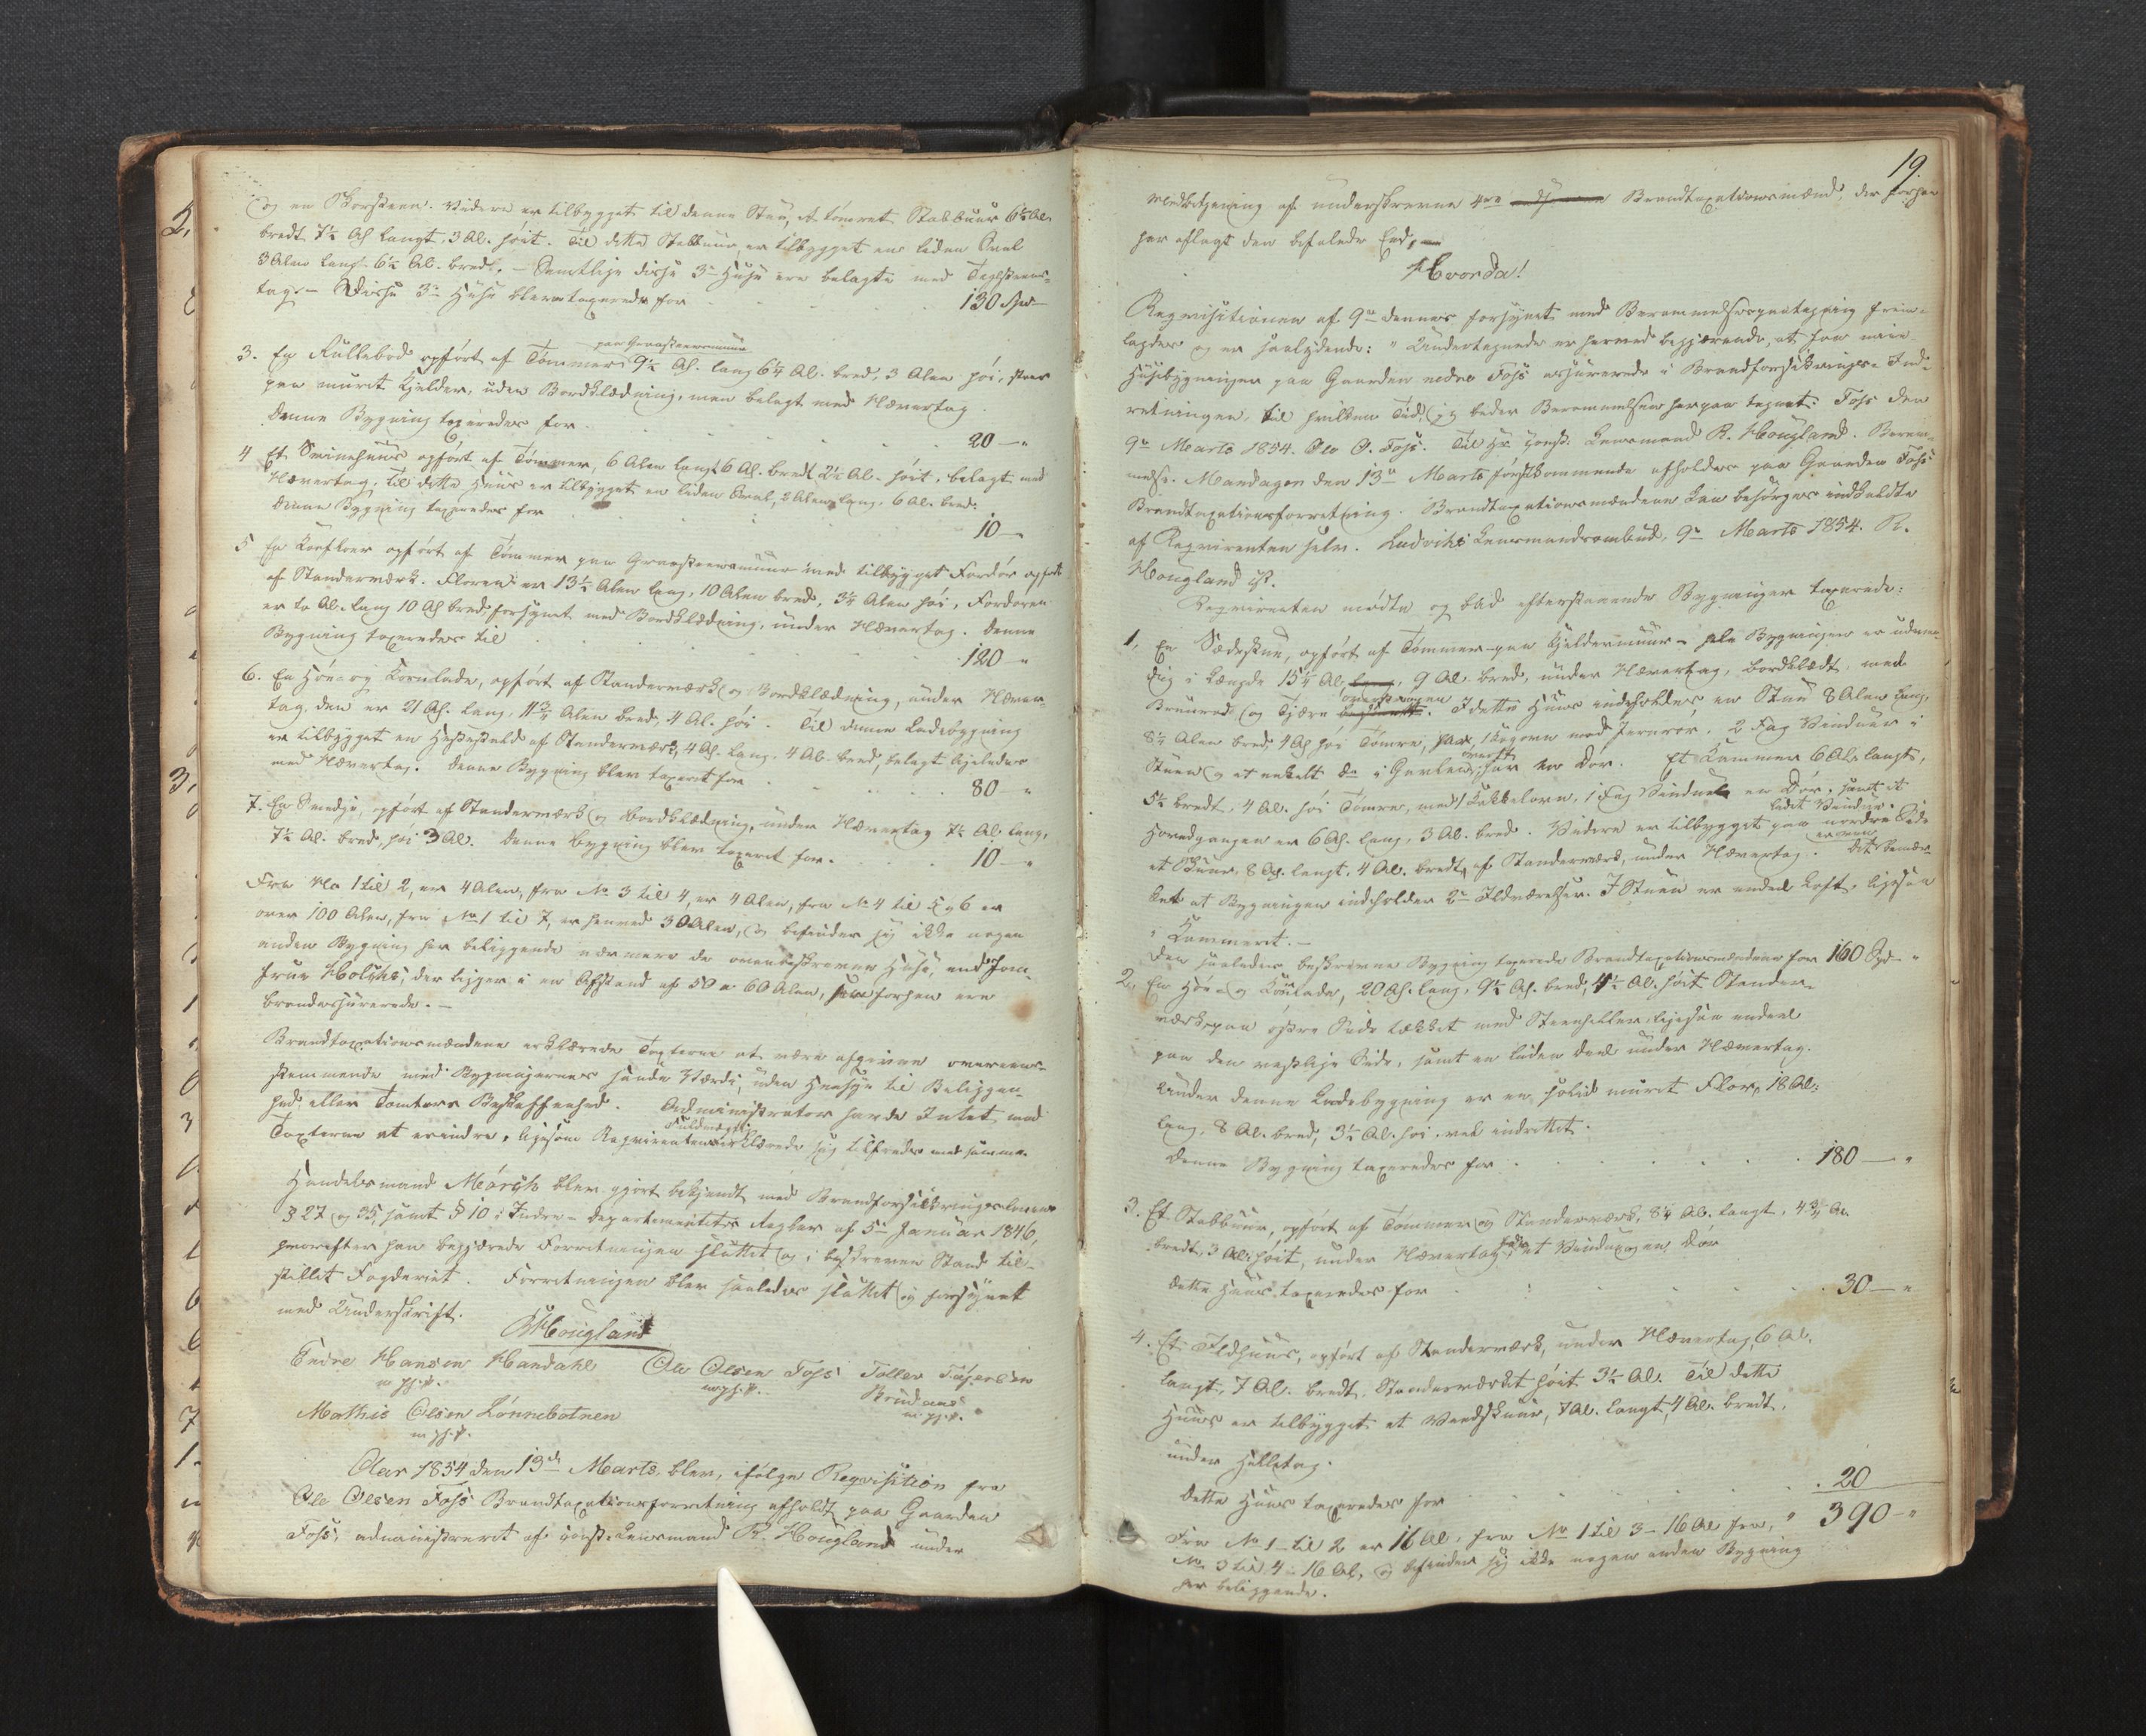 og en Skorsteen. Videre er tilbygget til denne Stue, et tømret Stabbuur 6½ Al.
bredt 7½ Al langt, 3 Al. høit. Til dette Stabbuur er tilbygget en liden Sval
3 Alen lang 6½ Al. bred. – Samtlige disse 3de Huse ere belagte med Teglsteens-
tag. – Disse 3de Huse bleve taxerede for 130 Spd –
3. En Rullebod opført af Tømmer paa Graasteensmuur 9½ Al. lang 6¼ Al. bred, 3 Alen høi, staar
paa muret Kjelder, uden Bordklædning, men belagt med Hævertag
denne Bygning taxeredes for 20 – "
4 Et Svinehuus opført af Tømmer, 6 Alen langt 6 Al. bredt 2½ Al. høit, belagt med
Hævertag, til dette Huus er tilbygget en liden Sval, 2 Alen lang. 6 Al. bred.
denne Bygning taxeredes for 10 –
5 En Koefloer opført af Tømmer paa Graasteensmuur med tilbygget Fordør opført
af Standerværk. Floren er 13½ Alen lang, 10 Alen bred, 3½ Alen høi, Fordøren
er to Al. lang 10 Al bred forsynet med Bordklædning, under Hævertag. Denne
Bygning taxeredes til 120 – "
6. En Høe- og Kornlade, opført af Standerværk og Bordklædning, under Hæver-
tag, den er 21 Al. lang, 11¾ Alen bred, 4 Al. høi. Til denne Ladebygning
er tilbygget en Hestestald af Standerværk, 4 Al. lang, 4 Al. bred, belagt ligeledes
med Hævertag. Denne Bygning blev taxeret for 80 – "
7. En Smedje, opført af Standerværk og Bordklædning, under Hævertag 7½ Al lang,
7½ Al. bred, høi 3 Al. Denne Bygning blev taxeret for 10 – "
Fra No 1 til 2, er 4 Alen, fra No 3 til 4, er 4 Alen, fra No 4 til 5 og 6 er
over 100 Alen, fra No 1 til 7, er henved 30 Alen, og befinder sig ikke nogen
anden Bygning her beliggende nærmere de ovenbeskrevne Huse, end som
Frue Holcks, der ligger i en Afstand af 50 a 60 Alen, som forhen ere
brandassurerede. –
Brandtaxationsmændene erklærede Taxterne at være afgivne overeens-
stemmende med Bygningernes sande Værdi, uden Hensyn til Beliggen-
hed eller Tomtens Beskaffenhed. Administrator havde Intet mod
Taxterne at erindre, ligesom Reqvirentens Fuldmægt. erklærede sig tilfreds med samme.
Handelsmand Mørch blev gjort bekjendt med Brandforsikringslovens
§ 27 og 35, samt § 10 i Indre-Departementets Regler af 5te Januar 1846,
hvorefter han begjærede Forretningen sluttet og i beskreven Stand til-
stillet Fogderiet. Forretningen blev saaledes sluttet og forsynet
med Underskrift.
R Hougland
Endre Hansen Handahl Ole Olsen Foss Tollev Tøgersen
m. p. P. m. p. P. Strudens
Mathis Olsen Lønnebotnen m. p. P.
m. p. P.
Aar 1854 den 13de Marts blev, ifølge Reqvisition fra
Ole Olsen Foss Brandtaxationsforretning afholdt paa Gaarden
Foss, administreret af const. Lensmand R. Hougland under
19.
Medbetjening af underskrevne 4re Brandtaxationsmænd, der forhen
har aflagt den befalede Eed. –
Hvorda!
Reqvisitionen af 9de dennes forsynet med Berammelsespaategning frem-
lagdes og er saalydende: "Undertegnede er herved begjærende, at faa mine
Huusbygninger paa Gaarden nedre Foss assurerede i Brandforsikrings-Ind-
retningen, til hvilken Tid, jeg beder Berammelsen herpaa tegnet. Foss den
9de Marts 1854. Ole O. Foss. Til Hr. const. Lensmand R. Hougland. Beram-
melse. Mandagen den 13de Marts førstkommende afholdes paa Gaarden Foss
Brandtaxationsforretning. Brandtaxationsmændene kan besørges indkaldte
af Reqvirenten selv. Ludviks Lensmandsombud, 9de Marts 1854. R.
Hougland cst.
Reqvirenten mødte og bad efterstaaende Bygninger taxerede:
1, En Sædestue, opført af Tømmer paa Kjeldermuur – hele Bygningen er udven-
dig i Længde 15½ Al, 9 Al. bred, under Hævertag, bordklædt, med
Bruunrød og Tjære overstrøgen. I dette Huus indeholdes en Stue 8 Alen lang,
8¼ Alen bred, 4 Al høi Tømre, har 1 Kogovn med Jernrør. 2 Fag Vinduer i
Stuen og et enkelt do i Gavlen øverst, har en Dør. Et Kammer 6 Al. langt,
5½ bredt, 4 Al. høi Tømre, med 1 Kakkelovn, 1 Fag Vindue en Dør, samt et lidet Vindue.
Forgangen er 6 Al. lang, 3 Al. bred. Videre er tilbygget paa nordre Side
et Skuur, 8 Al. langt, 4 Al. bredt, af Standerværk, under Hævertag. Det bemær-
kes at Bygningen indeholder 2de Ildværelser. I Stuen er endeel Loft, ligesaa
i Kammeret. –
Den saaledes beskrevne Bygning taxerede Brandtaxationsmændene for 160 Spd – "
2, En Høe- og Kornlade, 20 Al. lang, 9½ Al. bred, 4½ Al. høit Stander-
værk, paa østre Side tækket med Steenheller, ligesaa endeel
paa den vestlige Side, samt en liden Deel under Hævertag.
Under denne Ladebygning er en solid muret Flor, 18 Al.
lang, 8 Al. bred, 3½ Al. høi, vel indrettet.
Denne Bygning taxeredes for 180 – "
3. Et Stabbuur, opført af Tømmer og Standerværk, 8¼ Al. langt, 4¾ Al.
bredt, 3 Al. høit, under Hævertag, et Vindue og en Dør
dette Huus taxeredes for 30 – "
4. Et Ildhuus, opført af Standerværk, under Hævertag, 6 Al.
langt, 7 Al. bredt, Standerværket høit 3½ Al. Til dette
Huus er tilbygget et Vedskuur, 7 Al. langt, 4 Al. bredt,
under Helletag.
Dette Huus taxeredes for 20
" 390 – "
Fra No 1 til 2 er 16 Al, fra No 1 til 3 – 16 Al fra,
No 3 til 4 – 16 Al, og befinder sig ikke nogen anden Bygning
her beliggende.